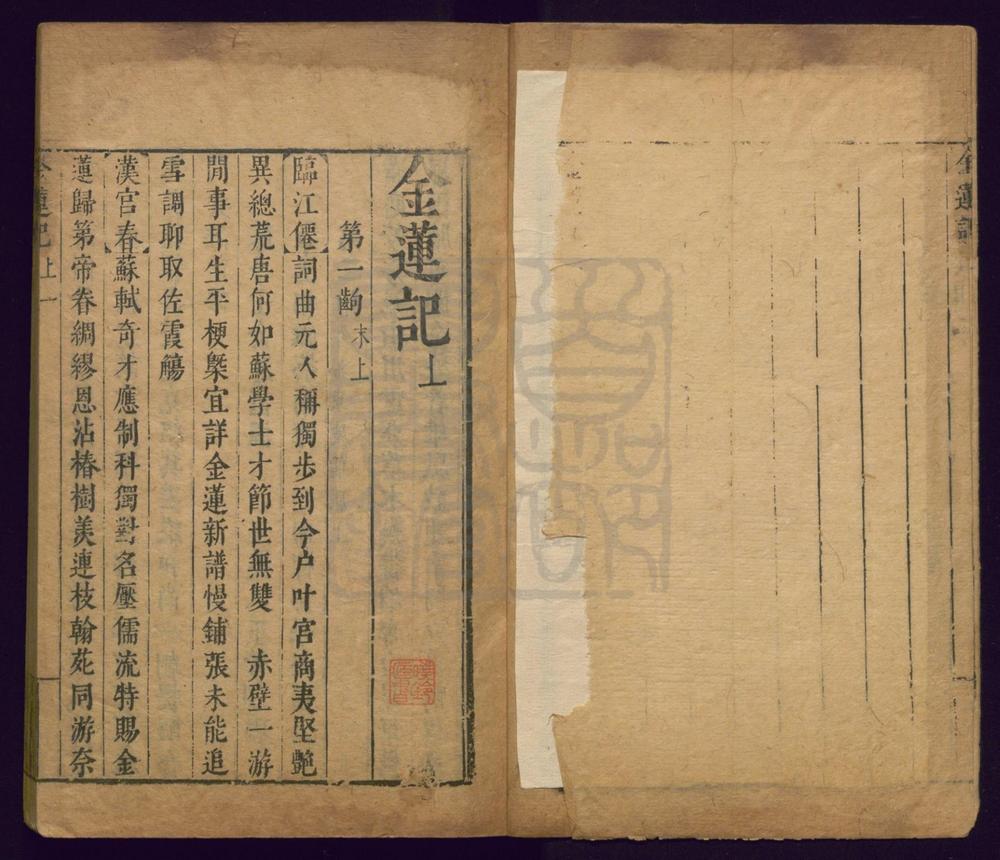 金蓮記
金蓮記上
第一齣末上
【臨江僊】詞曲元人稱獨步到今户叶宫商夷堅艶
異總荒唐何如蘇學士才節世無雙　赤壁一游
閒事耳生平梗槩宜詳金蓮新譜慢鋪張未能追
雪調聊取佐霞觴
【漢宮春】蘇軾奇才應制科獨對名壓儒流特賜金
蓮歸第帝眷綢繆恩沾椿樹美連枝翰苑同游奈
金蓮記上　一